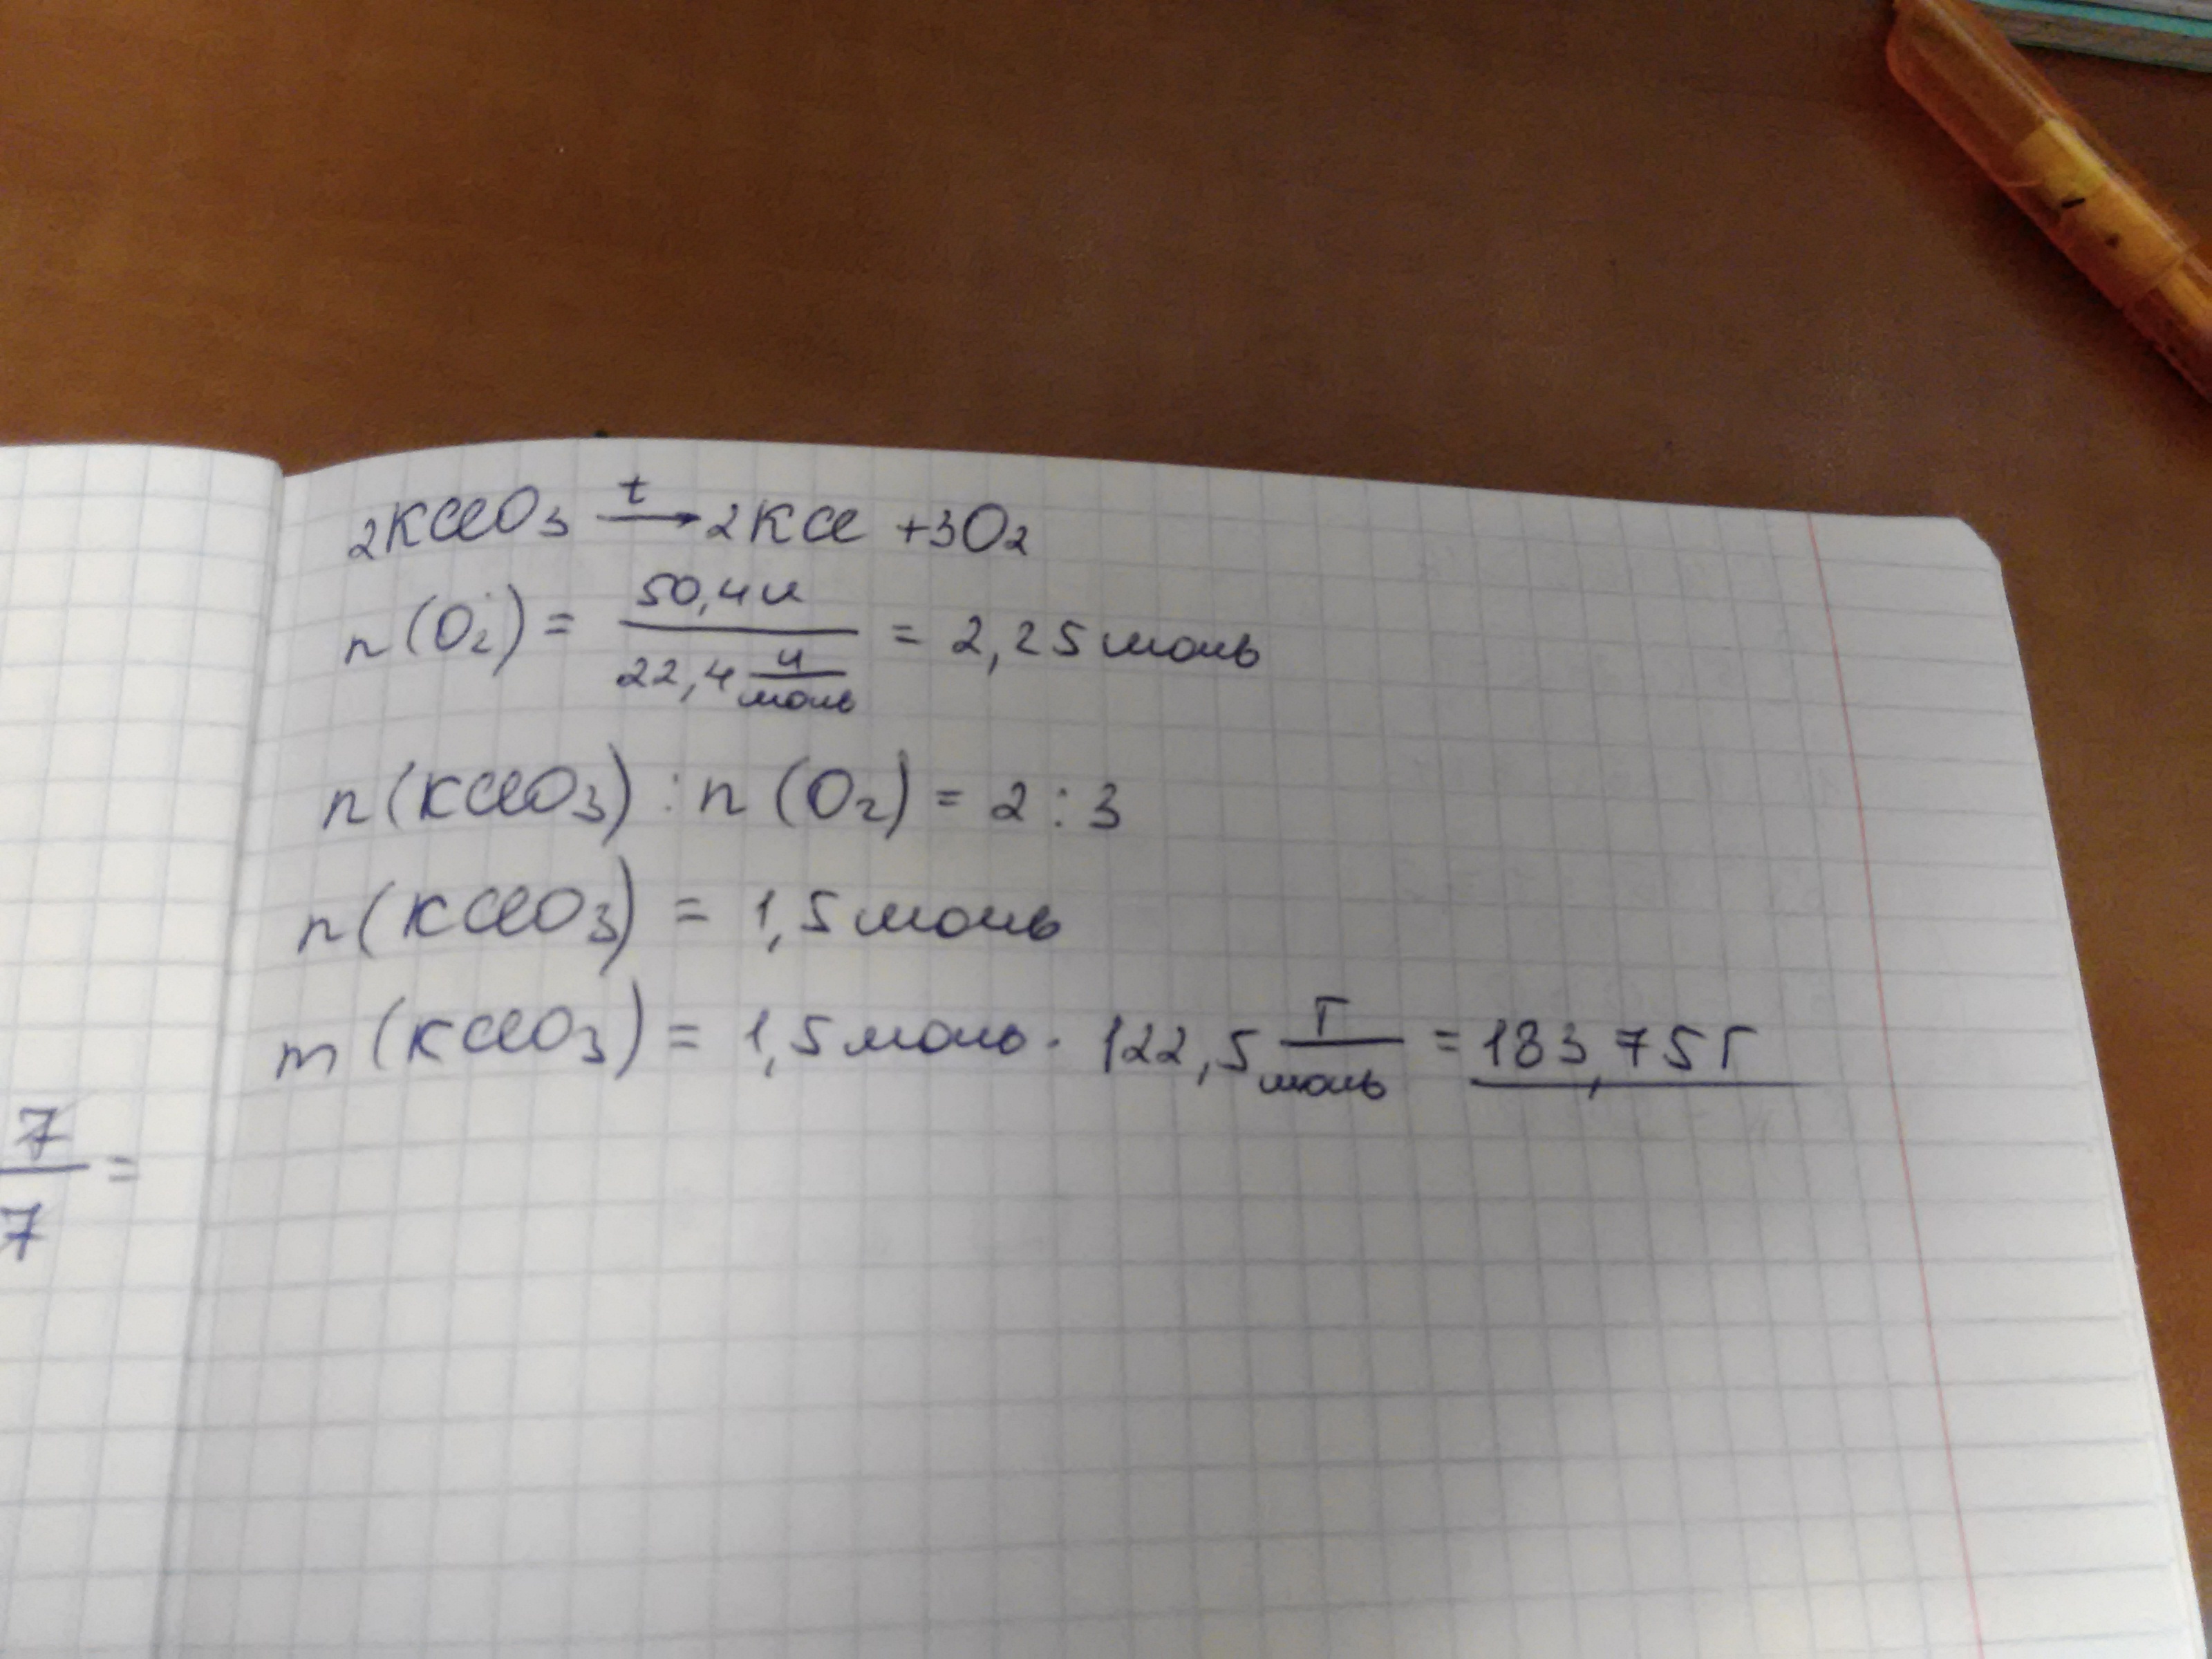 2KClO3 t→ 2KCl + 3O2
n(O2) = 50,4л / 22,4 л/моль = 2,25 моль
n(KClO3) : n(O2) = 2 : 3
n(KClO3) = 1,5 моль
m(KClO3) = 1,5 моль · 122,5 г/моль = 183,75 г
7/7 =